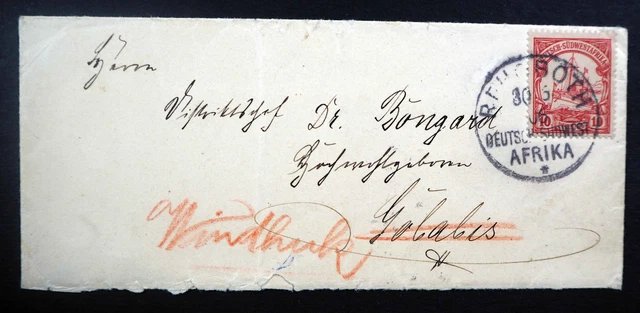 Herrn
Distriktschef Dr. Bongard
Hochwohlgeboren
Gobabis
Windhuk
DEUTSCH-SÜDWESTAFRIKA
10 10
REHOBOTH
30
DEUTSCH-SÜDWEST
AFRIKA
*